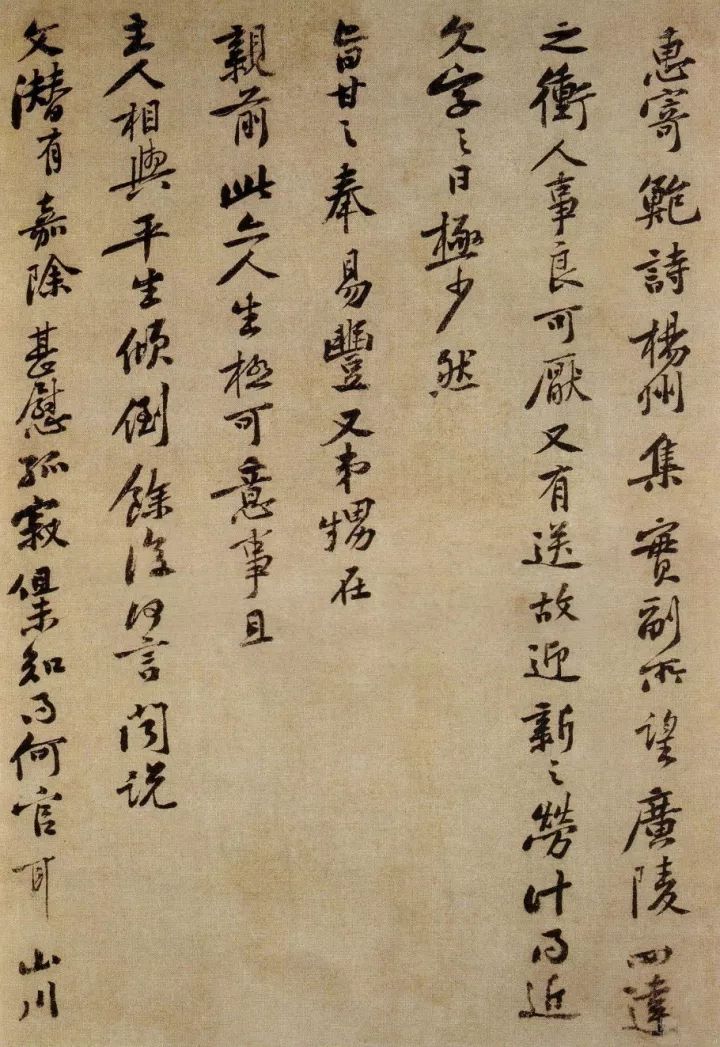 惠寄鲍詩楊州集實副所望廣陵四達
之衝人事良可厭又有送故迎新之勞計得近
文字之日極少然
旨甘之奉易豐又弟甥在
親前此亦人生極可意事且
主人相與平生傾倒餘復何言聞説
文潛有嘉除甚慰孤寂但未知得何官耳山川